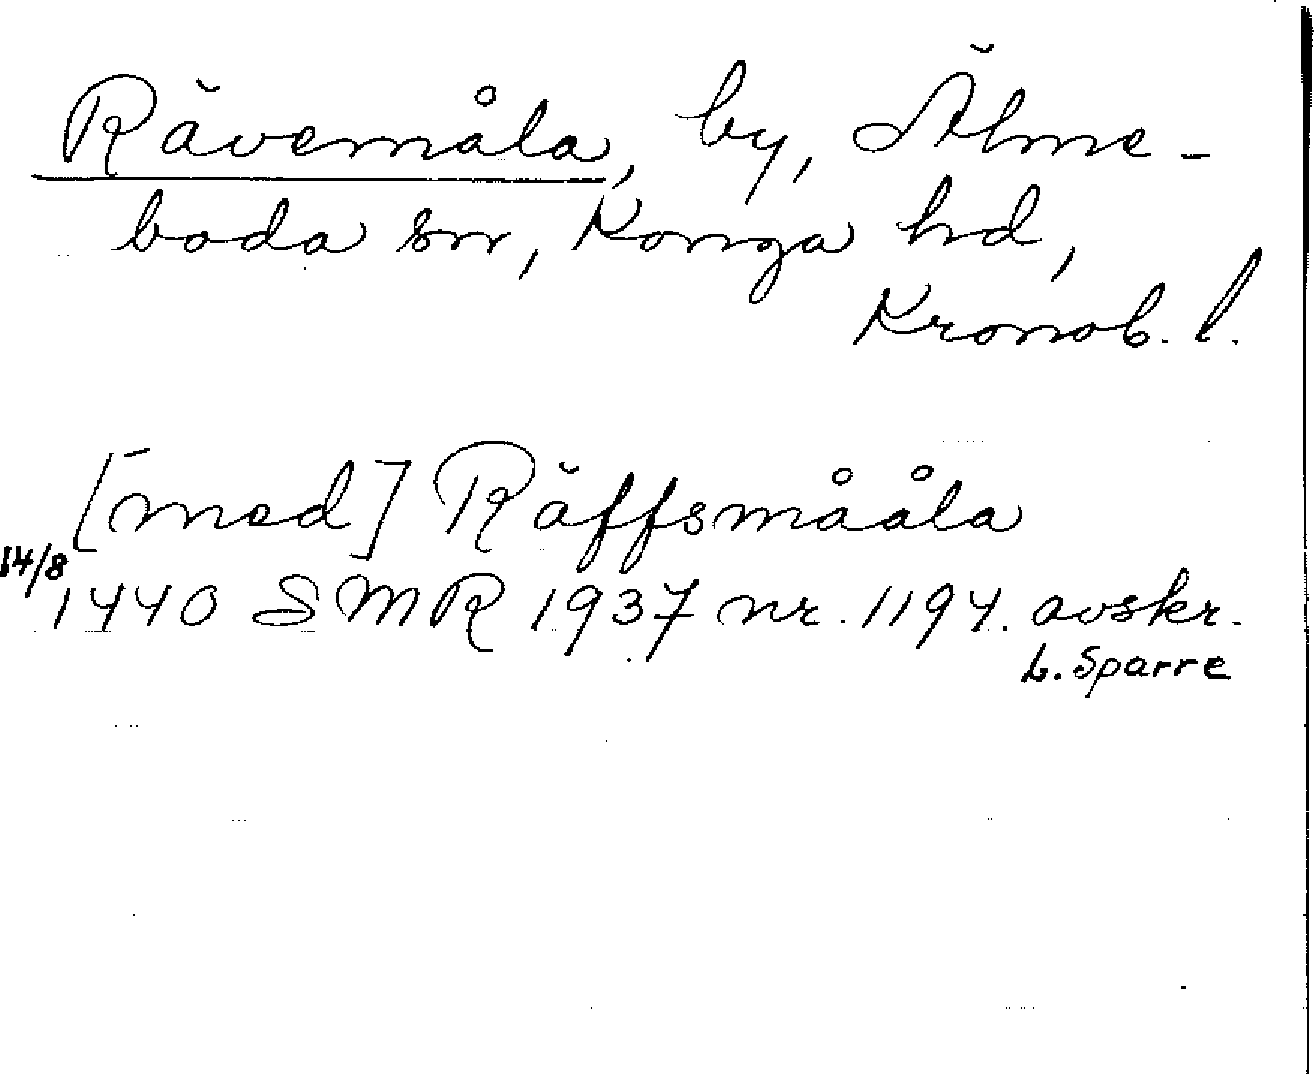 Rävemåla, by, Älme-
boda sn, Konga hd,
Kronob. l.
[med] Räffsmååla
14/8
1440 SMR 1937 nr. 1194. avskr.
L. Sparre